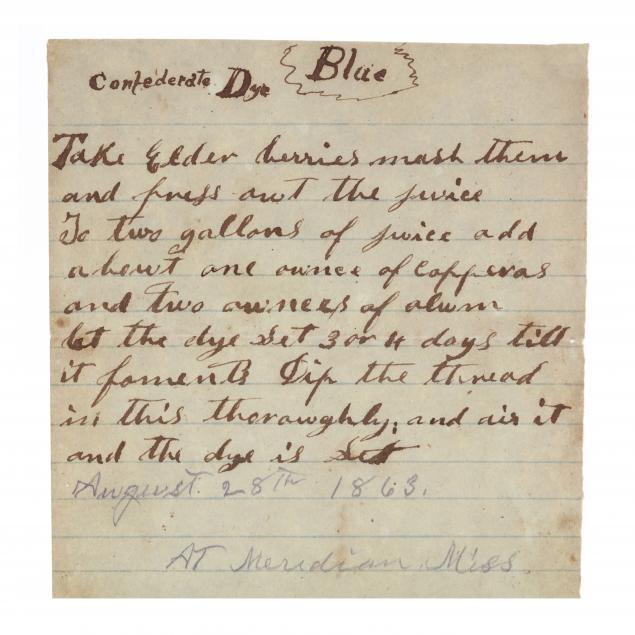 Confederate Dye Blue
Take Elder berries mash them
and press out the juice
To two gallons of juice add
about one ounce of copperas
and two ounces of alum
let the dye set 3 or 4 days till
it foments Dip the thread
in this thoroughly, and air it
and the dye is Set
August. 28TH 1863.
AT Meridian, Miss.